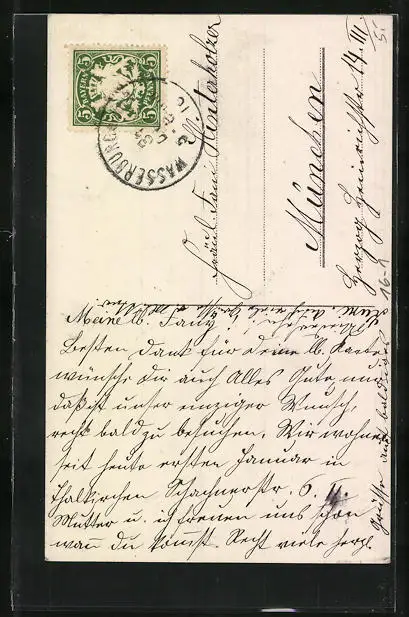 BAYERN
5 5
5 5
PFENNIG
WASSERBURG
Fräul. Fany Hinterholzer
München
Herzog Heinrichstr 14 III.
16-1
Meine lb. Fany
Besten Dank für Deine lb. Karte
wünsche Dir auch Alles Gute und
daß ist unser einziger Wunsch,
recht bald zu besuchen. Wir wohnen
seit heute ersten Januar in
Thalkirchen Schachnerstr. 6. II.
Mutter u. ich freuen uns schon
wann du kommst. Recht viele herzl.
Grüße auf baldiges